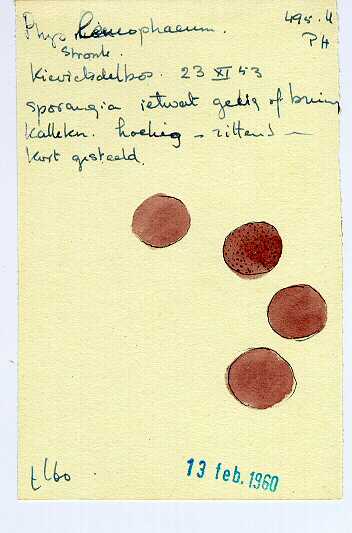 Phys. leucophaeum. 495.4
Stronk. PH
Kievitsdelbos. 23 XI 53
sporangia ietwat gelig of bruin
kalkkn. hoekig – zittend –
kort gesteeld.
13 feb. 1960